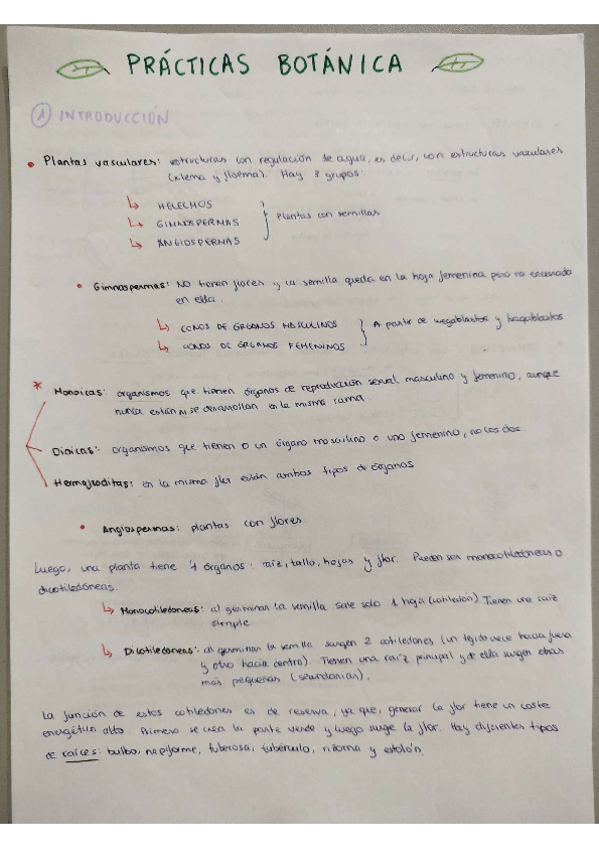 PRÁCTICAS BOTÁNICA
1 INTRODUCCIÓN
Plantas vasculares: estructuras con regulación de agua, es decir, con estructuras vasculares
(xilema y floema). Hay 3 grupos:
HELECHOS
GIMNOSPERMAS
ANGIOSPERMAS
Plantas con semillas
Gimnospermas: NO tienen flores y la semilla queda en la hoja femenina pero no encerrada
en ella.
CONOS DE ÓRGANOS MASCULINOS
CONOS DE ÓRGANOS FEMENINOS
A partir de megablastos y braquiblastos
* Monoicas: organismos que tienen órganos de reproducción sexual masculino y femenino, aunque
nunca están ni se desarrollan en la misma rama.
Dioicas: organismos que tienen o un órgano masculino o uno femenino, no los dos.
Hermafroditas: en la misma flor están ambos tipos de órganos
Angiospermas: plantas con flores.
Luego, una planta tiene 4 órganos: raíz, tallo, hojas y flor. Pueden ser monocotiledóneas o
dicotiledóneas.
Monocotiledoneas: al germinar la semilla sale solo 1 hoja (cotiledón) Tienen una raíz
simple
Dicotiledoneas: al germinar la semilla surgen 2 cotiledones (un tejido crece hacia fuera
y otro hacia dentro). Tienen una raíz principal y de ella surgen otras
más pequeñas (secundarias).
La función de estos cotiledones es de reserva, ya que, generar la flor tiene un coste
energético alto. Primero se crea la parte verde y luego surge la flor. Hay diferentes tipos
de raíces: bulbo, napiforme, tuberosa, tubérculo, rizoma y estolón.